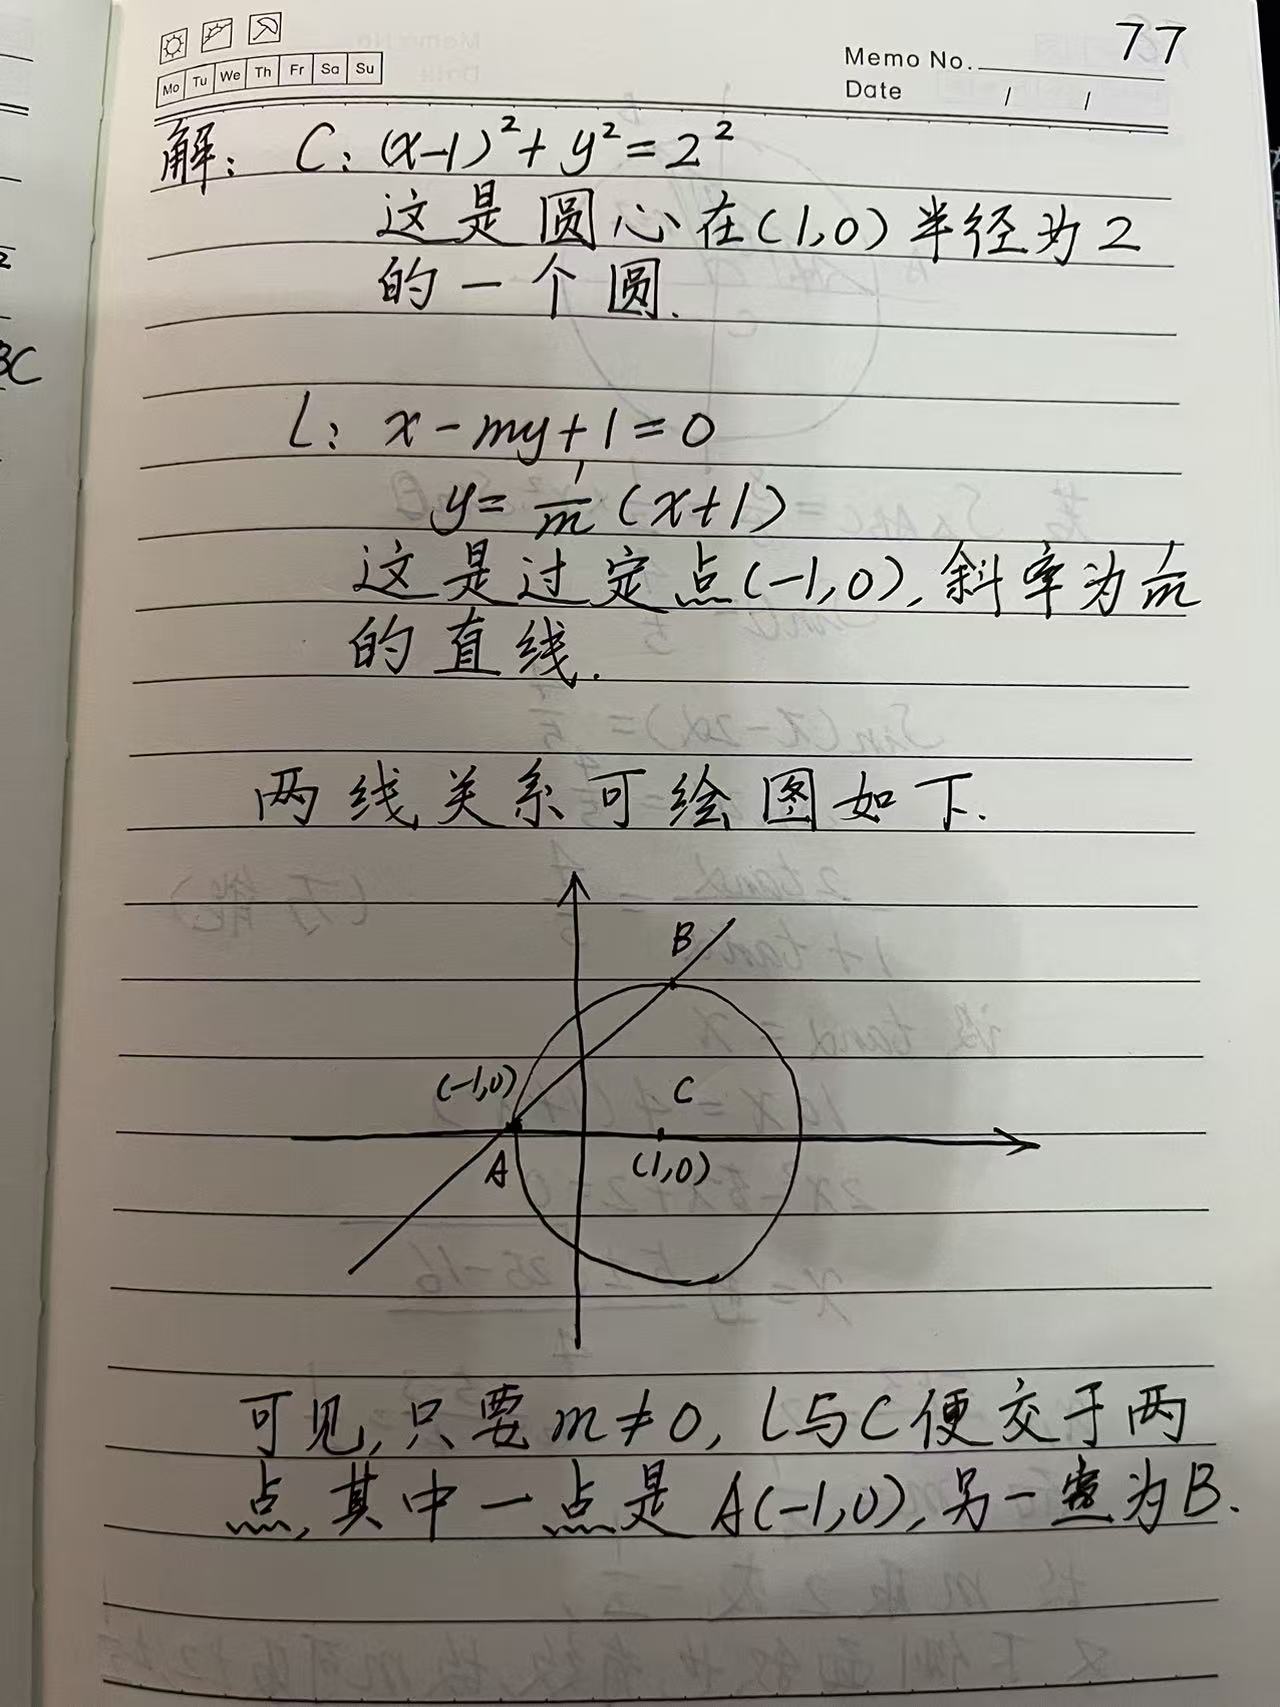 77
Memo No.
Mo Tu We Th Fr Sa Su
Date / /
解: C: (x-1)²+y²=2²
这是圆心在(1,0)半径为2
的一个圆.
BC
L: x-my+1=0
y=1/m(x+1)
这是过定点(-1,0),斜率为1/m
的直线.
两线关系可绘图如下.
B
(-1,0)
C
A
(1,0)
可见,只要m≠0, L与C便交于两
点,其中一点是A(-1,0),另一点为B.